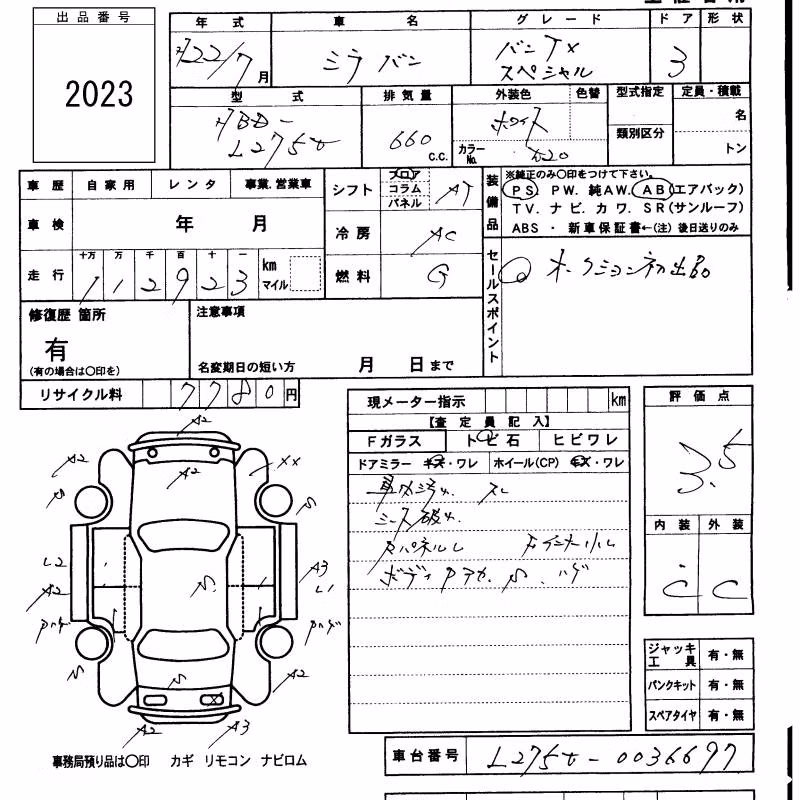 出品番号
2023
年式
H22/7月
車名
ミラバン
グレード
バンTX
スペシャル
ドア
3
形状
型式
HBD-
L275V
排気量
660
c.c.
外装色
色替
ホワイト
カラー
No.
型式指定
類別区分
定員・積載
名
トン
車歴
自家用
レンタ
事業.営業車
車検
年 月
走行
十万 万 千 百 十 一
112923
km
マイル
シフト
フロア
コラム
パネル
AT
冷房
AC
燃料
G
装備品
※純正のみ〇印をつけて下さい。
PS PW. 純AW. AB(エアバック)
TV. ナビ. カワ. SR(サンルーフ)
ABS ・ 新車保証書←(注)後日送りのみ
セールスポイント
オークション初出品
修復歴 箇所
有
(有の場合は〇印を)
注意事項
名変期日の短い方 月 日まで
リサイクル料
7780円
現メーター指示
km
【査定員記入】
Fガラス
トビ石
ヒビワレ
ドアミラー キズ・ワレ
ホイール(CP) キズ・ワレ
車内汚れ スレ
シート破れ
評価点
3.5
内装
外装
C
C
A2
A2
A2
XX
L2
A2
A3
L1
A2
A2
A3
ジャッキ
工具
有・無
パンクキット
有・無
スペアタイヤ
有・無
事務局預り品は〇印 カギ リモコン ナビロム
車台番号
L275V-0036697